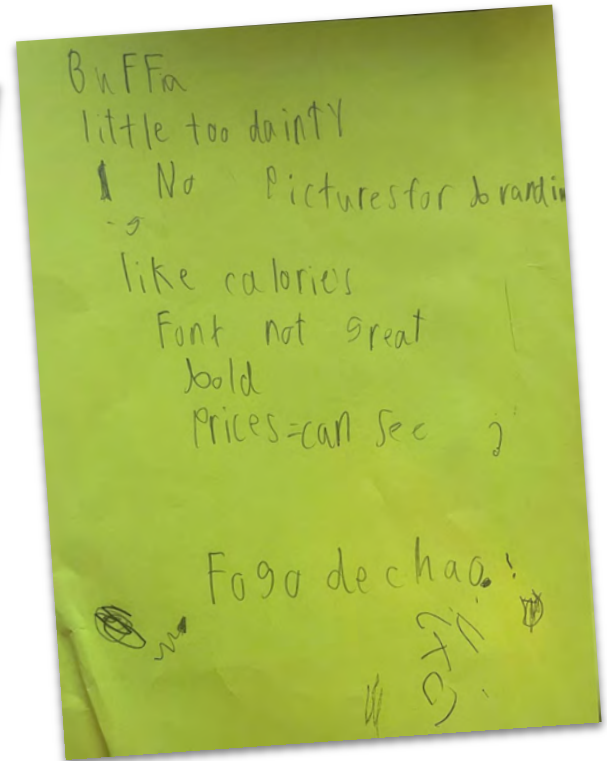 BuFFa
little too dainty
No Pictures for brandin
like calories
Font not great
bold
Prices=can see
Fogo de chao.!